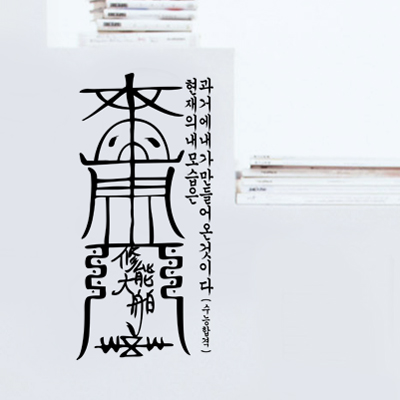 현재의 내 모습은
과거에 내가 만들어 온 것이다 (수능합격)
修能大舶